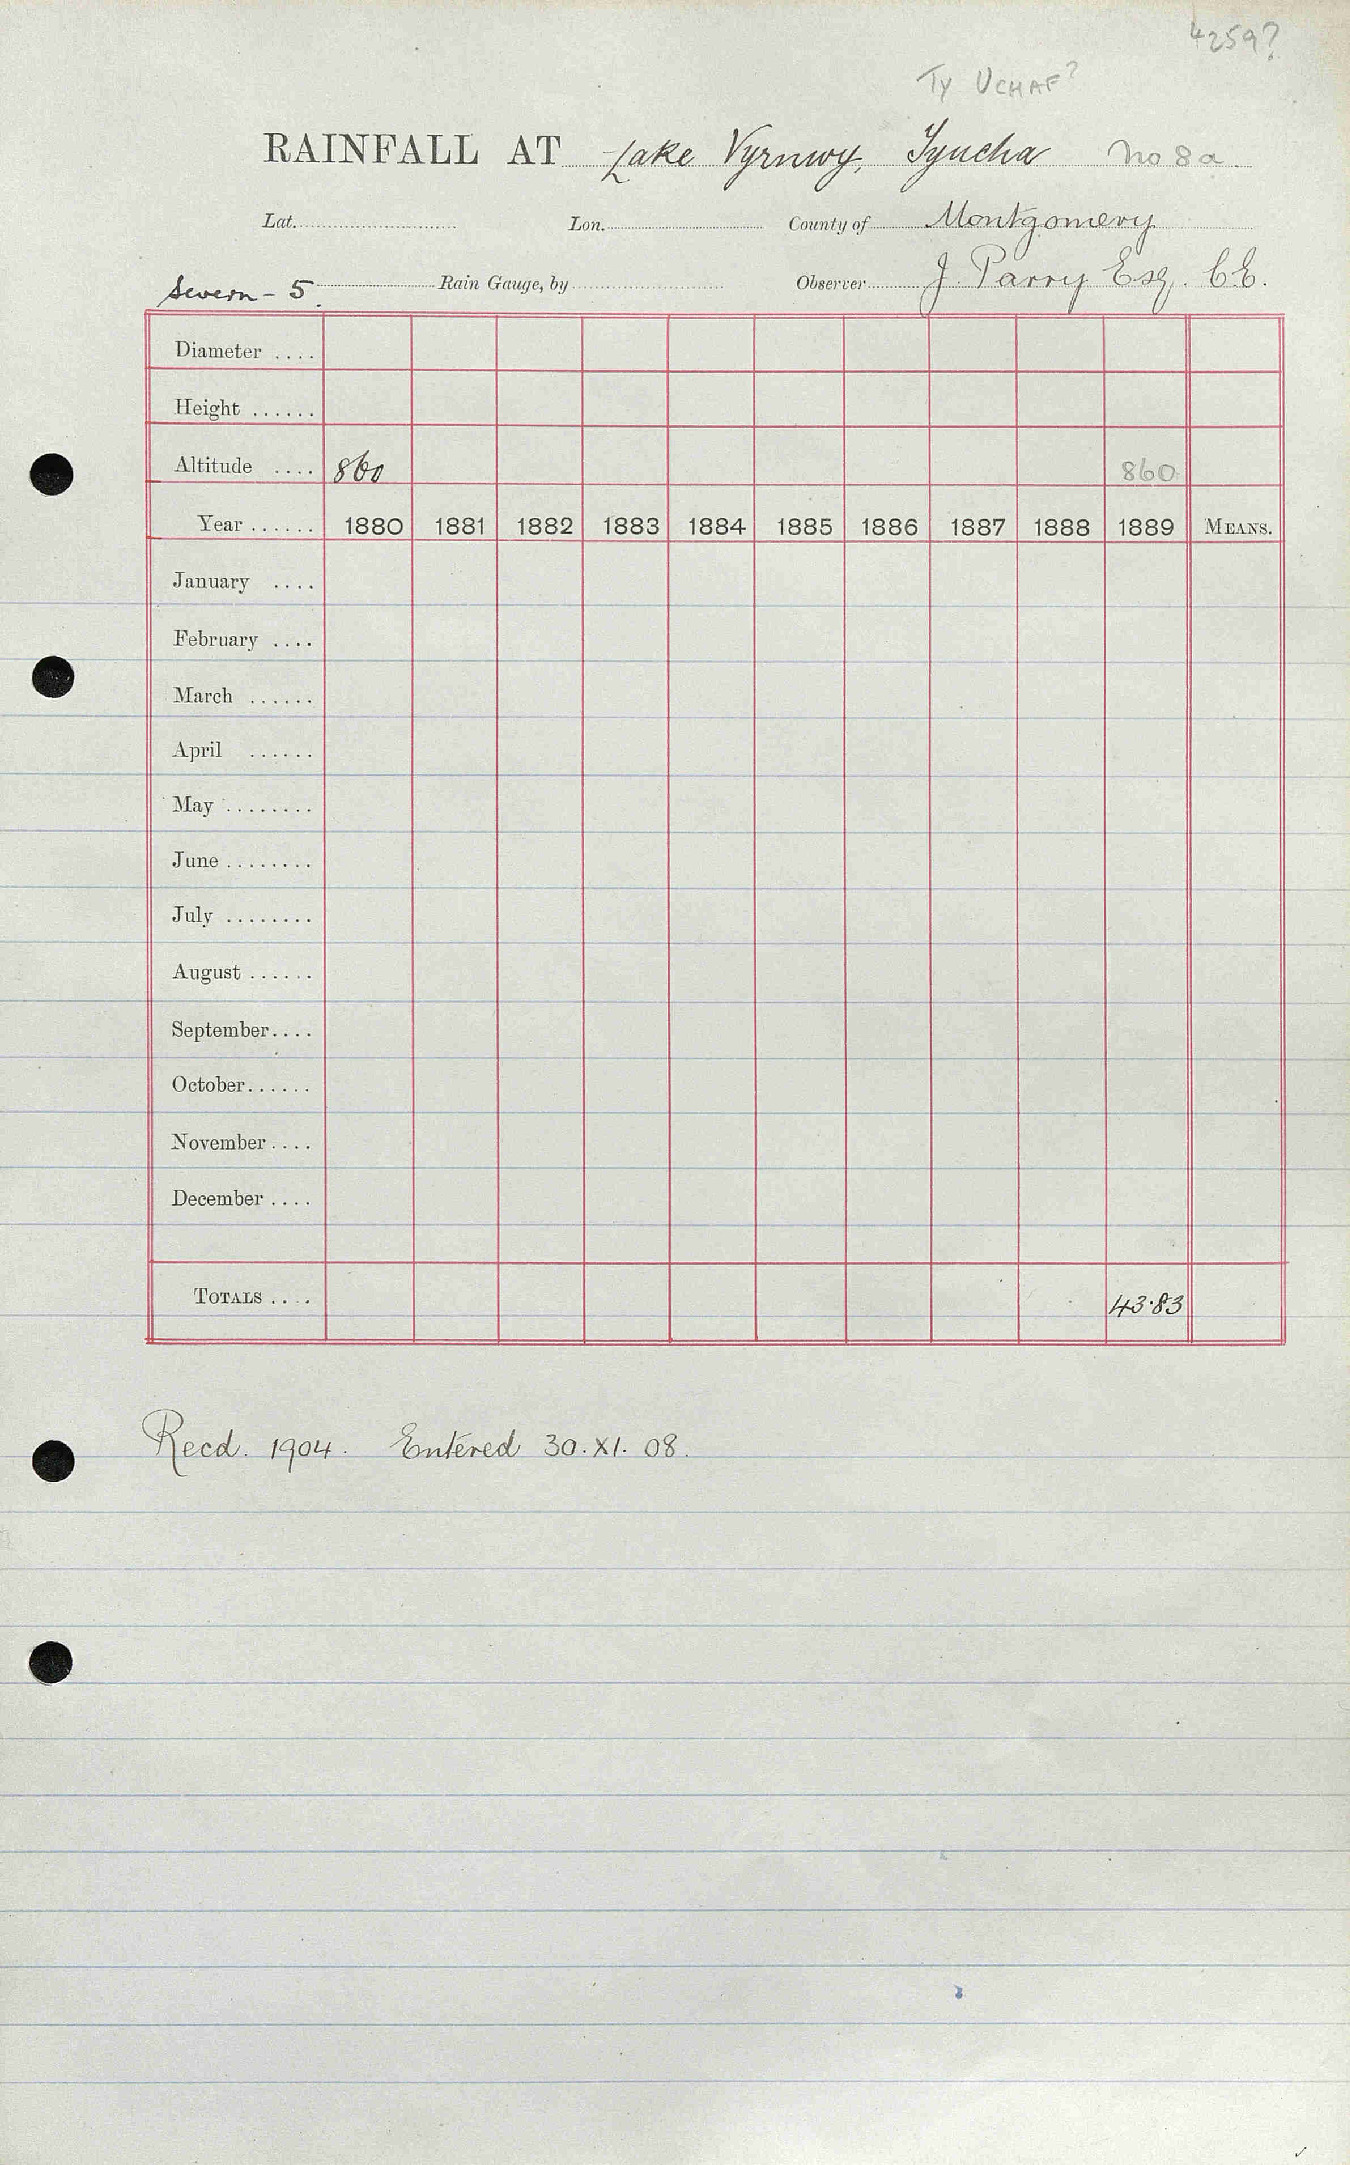 4259?
Ty UCHAF?
RAINFALL AT Lake Vyrnwy, Tyucha No 8a
Lat. Lon. County of Montgomery
Severn - 5. Rain Gauge, by Observer J. Parry Esq. C.E.
Diameter ....
Height ......
Altitude .... 860 860
Year ...... 1880 1881 1882 1883 1884 1885 1886 1887 1888 1889 MEANS.
January ....
February ....
March ......
April ......
May ........
June ........
July ........
August ......
September ....
October ......
November ....
December ....
TOTALS .... 43.83
Recd. 1904. Entered 30.XI.08.